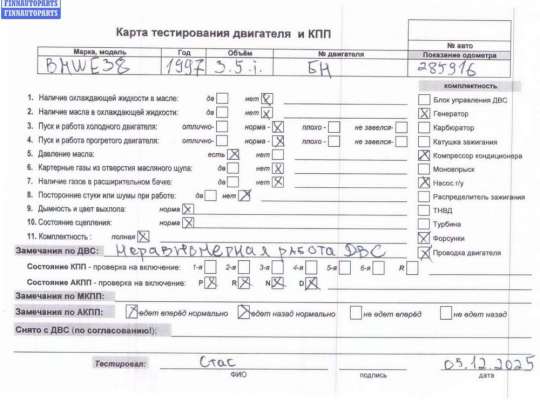 FINNAUTOPARTS
FINNAUTOPARTS
Карта тестирования двигателя и КПП
№ авто
Марка, модель Год Объём № двигателя Показание одометра
BMW E38 1997 3.5 i. БН 285916
комплектность
1. Наличие охлаждающей жидкости в масле: да нет X
Блок управления ДВС
2. Наличие масла в охлаждающей жидкости: да нет X
X Генератор
3. Пуск и работа холодного двигателя: отлично- норма - X плохо - не завелся-
Карбюратор
4. Пуск и работа прогретого двигателя: отлично- норма - X плохо - не завелся-
Катушка зажигания
5. Давление масла: есть X нет
X Компрессор кондиционера
6. Картерные газы из отверстия масляного щупа: да нет X
Моновпрыск
7. Наличие газов в расширительном бачке: да нет X
X Насос г/у
8. Посторонние стуки или шумы при работе: да нет X
Распределитель зажигания
9. Дымность и цвет выхлопа: норма X
ТНВД
10. Состояние сцепления: норма X
Турбина
11. Комплектность : полная X
X Форсунки
Замечания по ДВС: неравномерная работа ДВС
X Проводка двигателя
Состояние КПП - проверка на включение: 1-я 2-я 3-я 4-я 5-я 6-я R
Состояние АКПП - проверка на включение: P X R X N X D X
Замечания по МКПП:
Замечания по АКПП: X едет вперёд нормально X едет назад нормально не едет вперёд не едет назад
Снято с ДВС (по согласованию!):
Тестировал: Стас 05.12.2025
ФИО подпись дата